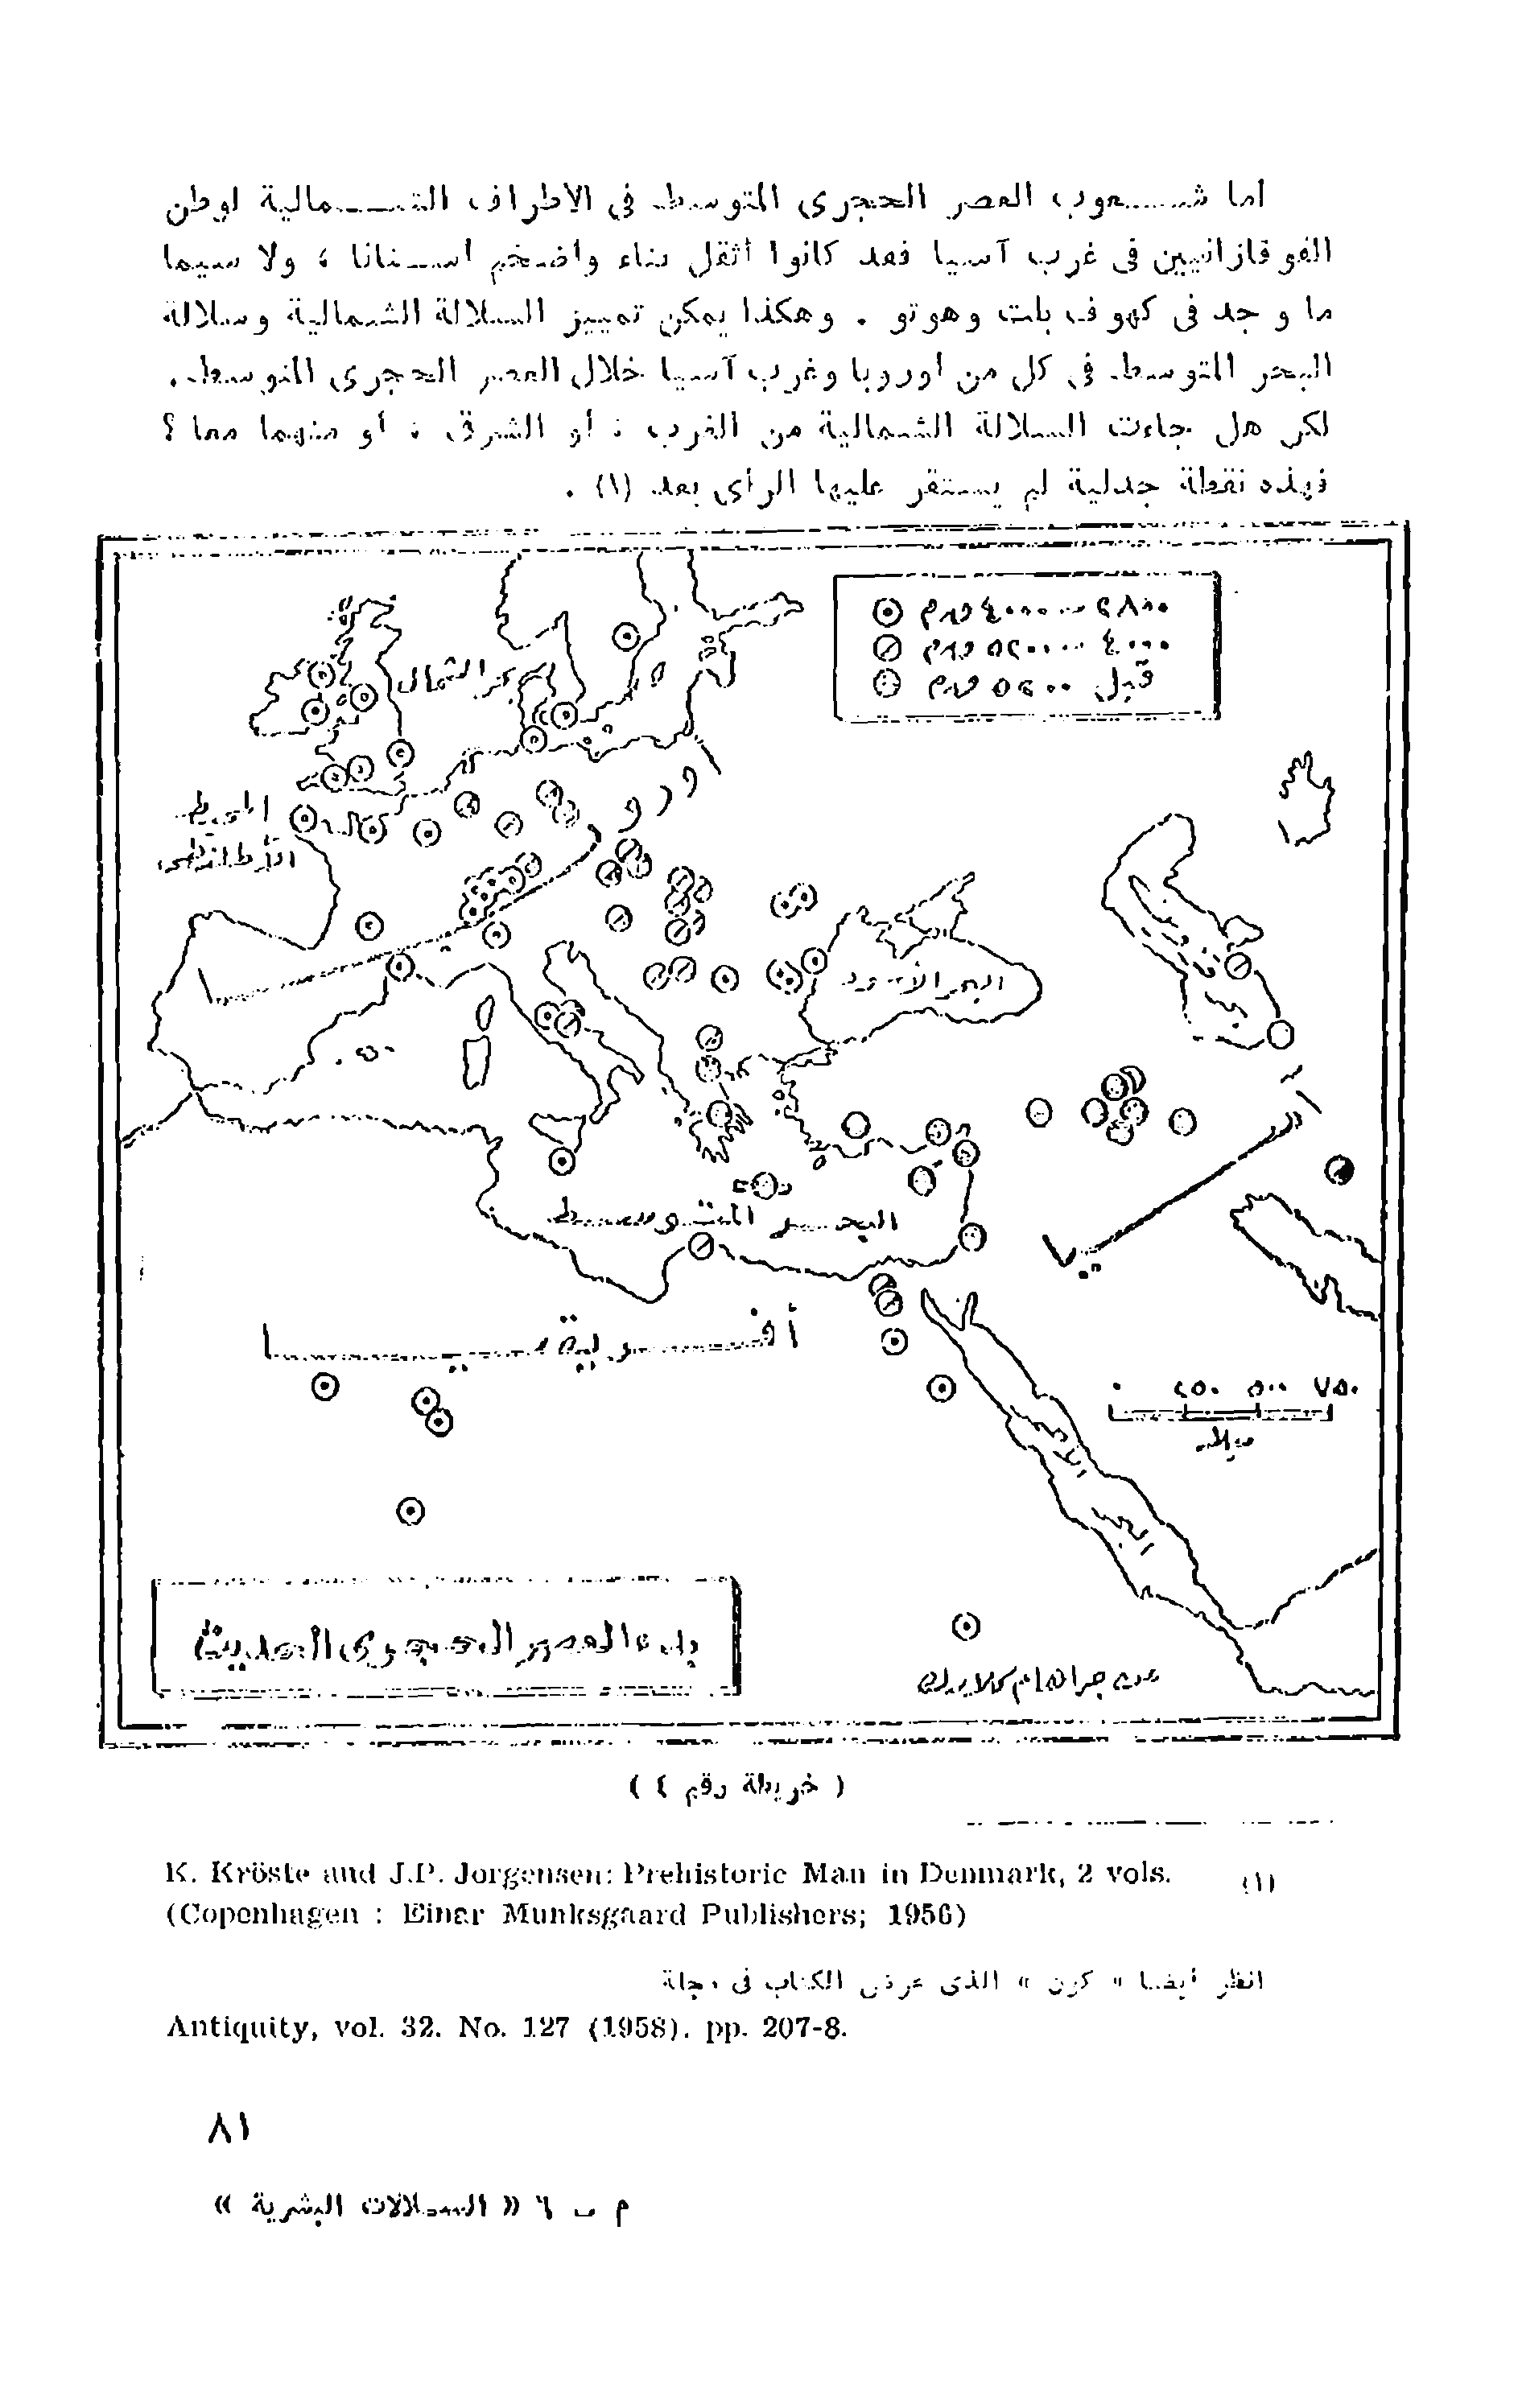 أما شعوب العصر الحجرى المتوسط فى الاطراف الشمالية لوطن
القوقازانيين فى غرب آسيا فقد كانوا أثقل بناء وأضخم أسنانا ، ولا سيما
ما وجد فى كهوف بلت وهوتو . وهكذا يمكن تمييز السلالة الشمالية وسلالة
البحر المتوسط فى كل من أوروبا وغرب آسيا خلال العصر الحجرى المتوسط .
لكن هل جاءت السلالة الشمالية من الغرب ، أو الشرق ، أو منهما معا ؟
فهذه نقطة جدلية لم يستقر عليها الرأى بعد (١) .
٢٨٠٠ - ٤٠٠٠ ق.م
٤٠٠٠ - ٥٢٠٠ ق.م
قبل ٥٢٠٠ ق.م
بحر الشمال
المحيط
الأطلنطى
أوروبا
البحر الأسود
البحر المتوسط
آسيا
أفريقيا
٠ ٢٥٠ ٥٠٠ ٧٥٠
ميلا
البحر
بدء العصر الحجرى الحديث
عن جراهام كلارك
( خريطة رقم ٤ )
(١) K. Kröste and J.P. Jorgensen: Prehistoric Man in Denmark, 2 vols.
(Copenhagen : Einar Munksgaard Publishers; 1956)
انظر أيضا « كون » الذى عرض الكتاب فى مجلة
Antiquity, vol. 32. No. 127 (1958). pp. 207-8.
٨١
م - ٦ « السلالات البشرية »